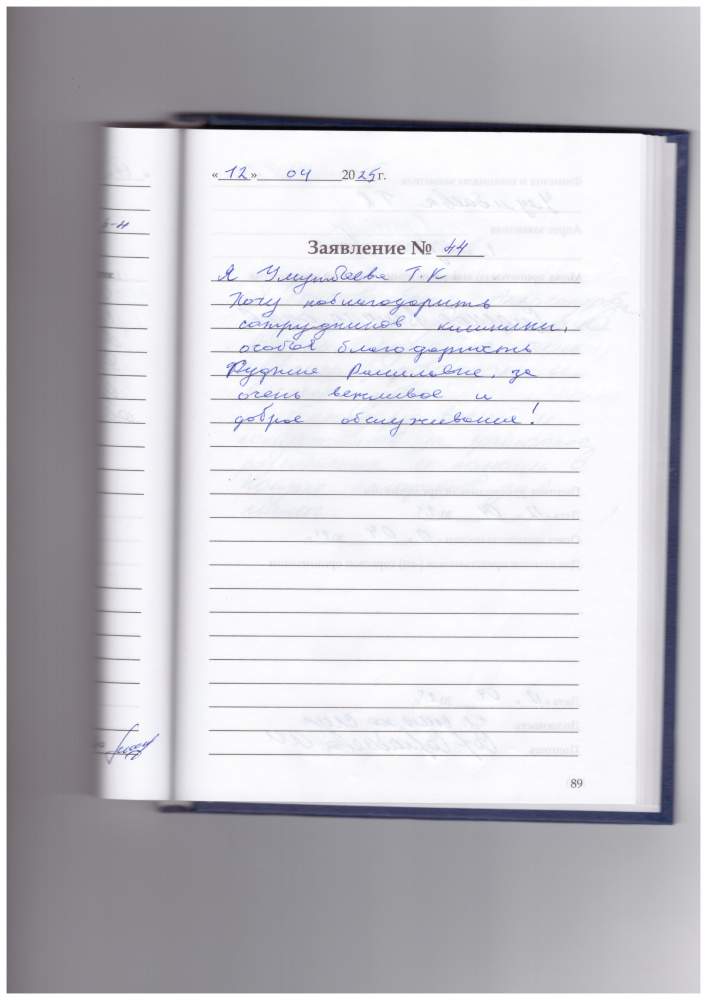 «12» 04 2025 г.
Заявление № 44
Я Умутбаева Т.К
Хочу поблагодарить
сотрудников клиники,
особая благодарность
Раиловне, за
очень вежливое и
доброе обслуживание!
89